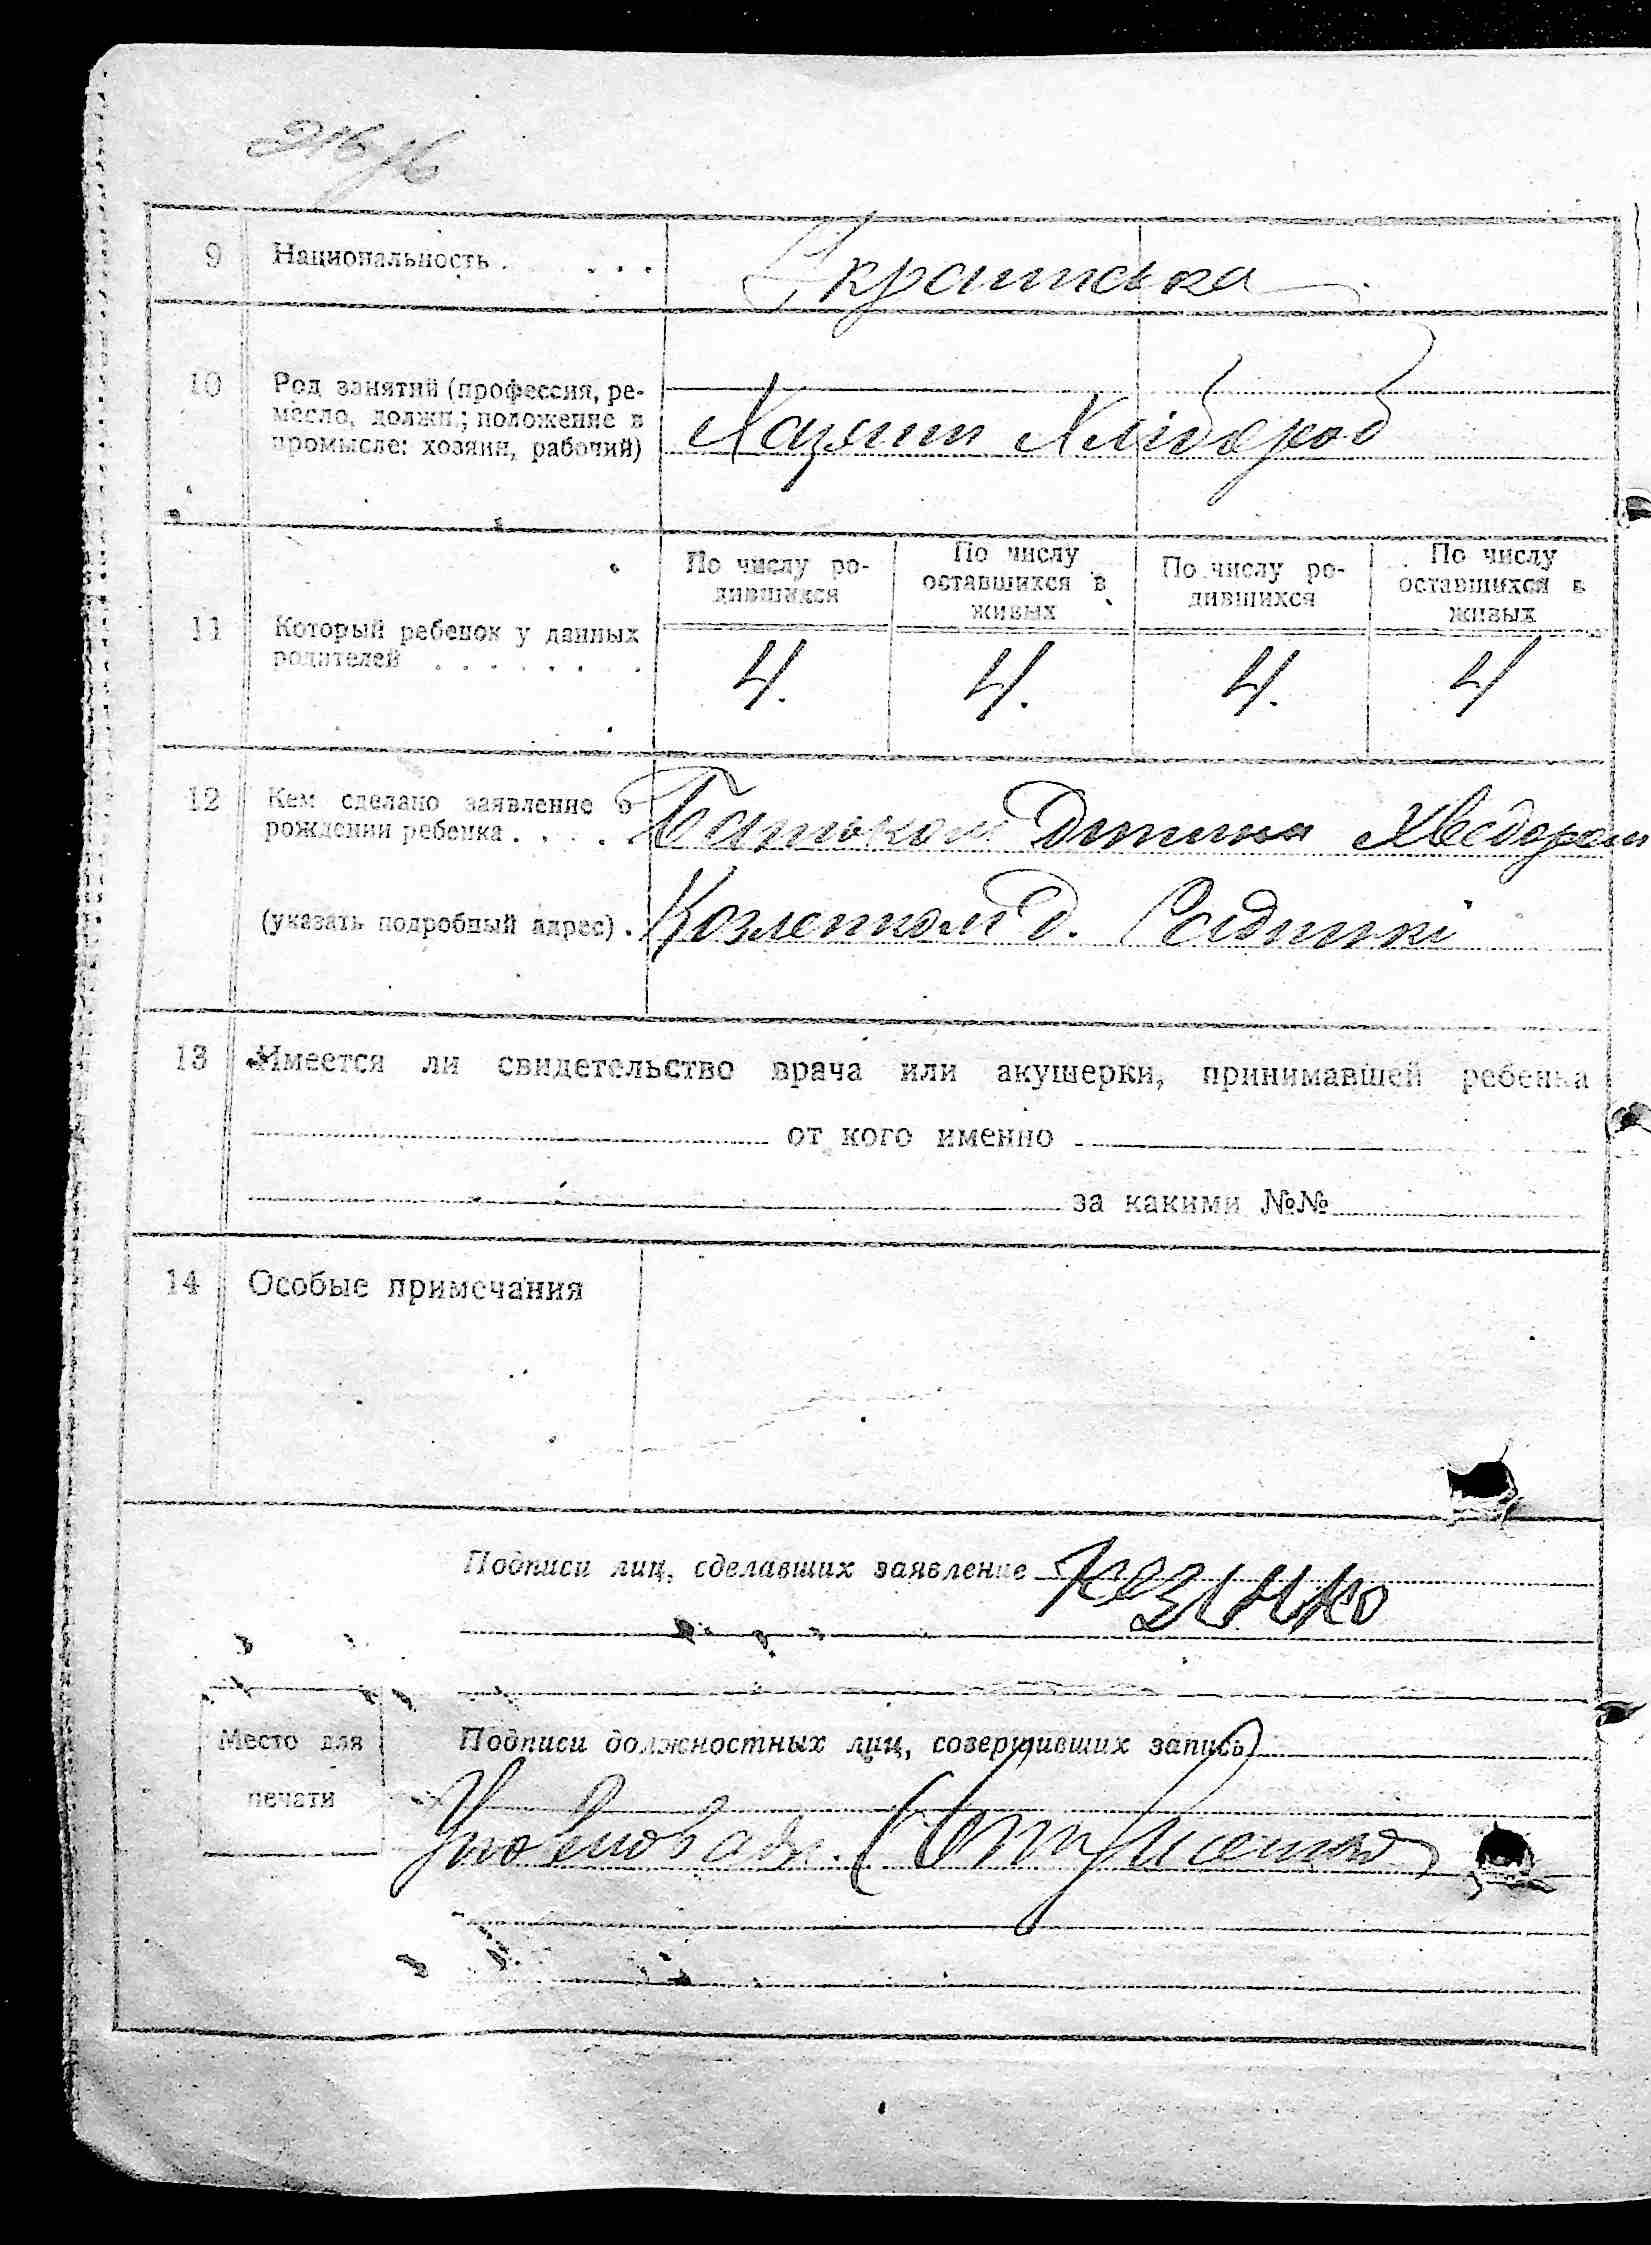 9 Национальность . . . . . Українська
10 Род занятий (профессия, ре-
месло, должн.; положение в
промысле: хозяин, рабочий) Хазяїн Хлібороб
По числу ро-
дившихся
По числу
оставшихся в
живых
По числу ро-
дившихся
По числу
оставшихся в
живых
11 Который ребенок у данных
родителей . . . . . . . . 4. 4. 4. 4
12 Кем сделано заявление о
рождении ребенка . . . . Батьком Дитини Хведором
(указать подробный адрес) . Козленком д.
13 Имеется ли свидетельство врача или акушерки, принимавшей ребенка
от кого именно
за какими №№
14 Особые примечания
Подписи лиц, сделавших заявление
Место для
печати
Подписи должностных лиц, совершивших запись)